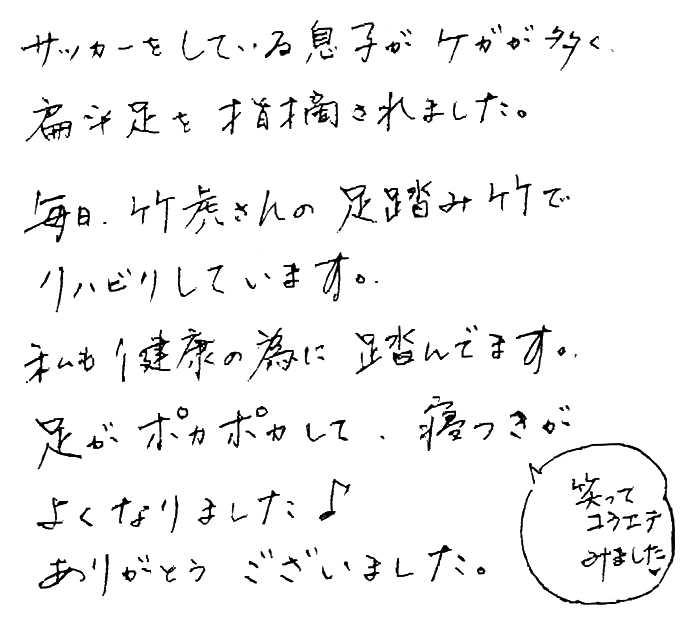 サッカーをしている息子が ケガが多く、
扁平足を指摘されました。
毎日、竹虎さんの 足踏み竹で
リハビリしています。
私も健康の為に 踏んでます。
足が ポカポカして、寝つきが
よくなりました♪
ありがとう ございました。
笑って
コラエテ
みました♥